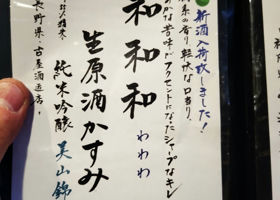 新酒入荷致しました!
軽快な口当り、
かな苦味がアクセントになたシャープなキレ
和和和
わわわ
生原酒かすみ
純米吟醸 美山錦
長野県・古屋酒造店。